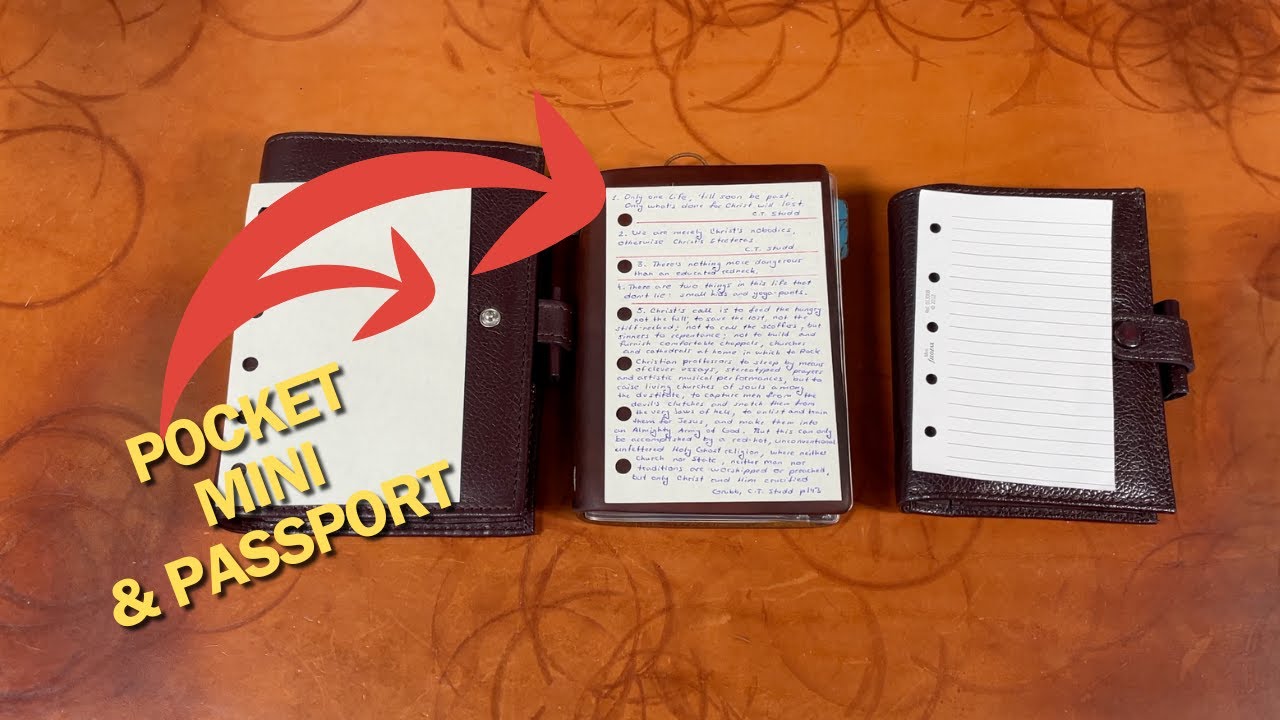 POCKET
MINI
& PASSPORT
1. Only one Life, 'till soon be past.
Only what's done for Christ will last
C.T. Studd
2. We are merely Christ's nobodies,
otherwise Christ's
C.T. Studd
3. There's nothing more dangerous
than an educated redneck.
4. There are two things in this life that
don't lie: small kids and yoga-pants.
5. Christ's call is to feed the hungry
not the full; to save the lost, not the
stiff-necked; not to call the scoffers, but
sinners to repentence; not to build and
furnish comfortable chappels, churches
and cathedrals at home in which to Rock
Christian professors, to sleep by means
of clever essays, stereotyped prayers
and artistic musical performances, but to
raise living churches of souls among
the destitute, to capture men from the
devil's clutches and snatch them from
the very jaws of hell, to enlist and train
them for Jesus, and make them into
an Almighty Army of God. But this can only
be accomplished by a red-hot, unconventional
unfettered Holy Ghost religion, where neither
Church nor State, neither man nor
traditions are worshipped or preached,
but only Christ and Him crucified
Grubb, C.T. Studd p153
Mini
filofax
© 2012